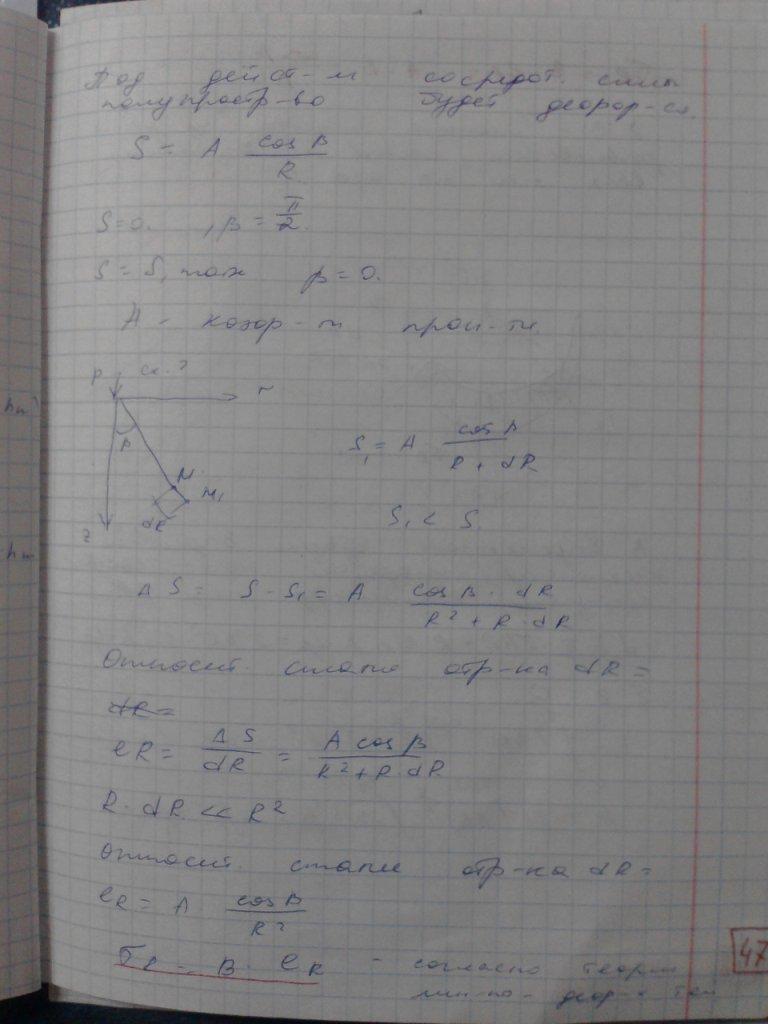 Под дейст-м сосредот. силы
полупростр-во будет деформ-ся.
S = A cos β / R
S=0. , β = π/2.
S = S, max β = 0.
A - коэф-т проп-ти.
P
r
β
M
M₁
dR
z
S₁ = A cos β / R + dR
S₁ < S.
Δ S = S - S₁ = A cos β · dR / R² + R · dR
Относит. сжатие отр-ка dR =
dR =
eR = Δ S / dR = A cos β / R² + R · dR
R · dR << R²
Относит. сжатие отр-ка dR =
eR = A cos β / R²
σR = B · eR - согласно теории
лин-но-деф-х тел
47